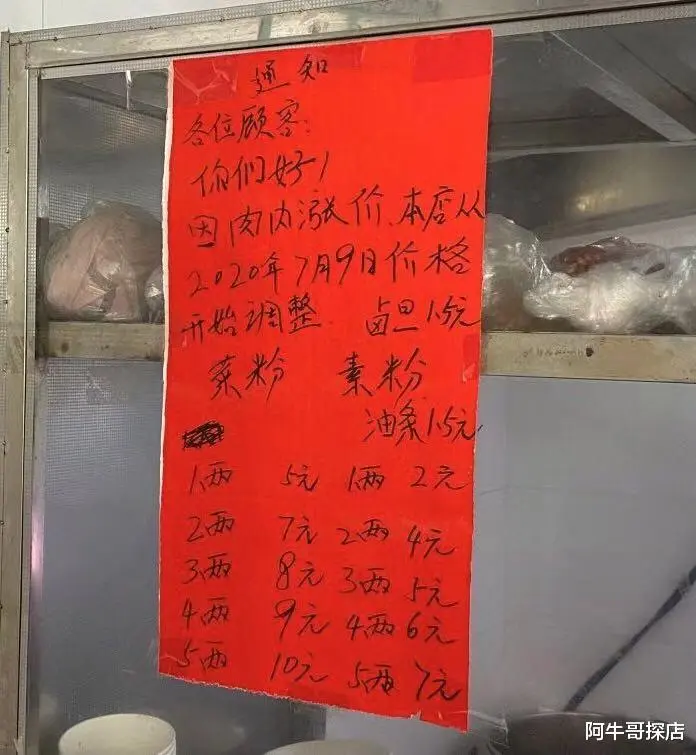 通知
各位顾客:
你们好!
因肉内涨价、本店从
2020年7月9日价格
开始调整 卤旦1.5元
菜粉 素粉
油条1.5元
1两 5元 1两 2元
2两 7元 2两 4元
3两 8元 3两 5元
4两 9元 4两 6元
5两 10元 5两 7元
阿牛哥探店